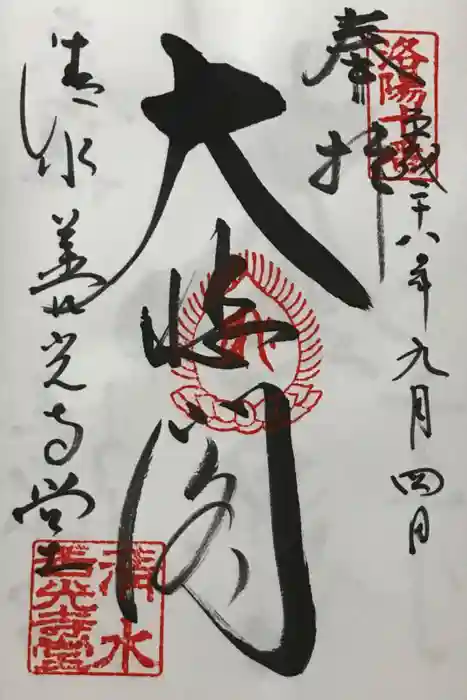 奉拝
洛陽十番
平成二十八年九月四日
大悲閣
清水 善光寺堂
清水
善光寺堂